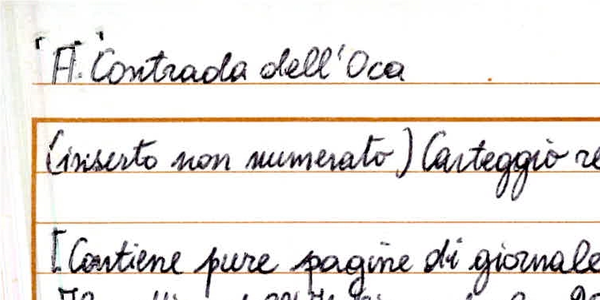 "A. Contrada dell'Oca
(inserto non numerato) Carteggio re
[Contiene pure pagine di giornale